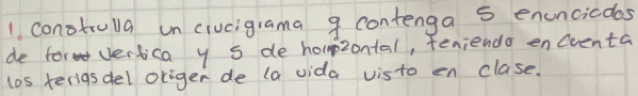 1. construlla un crucigrama q contenga 5 enunciados
de forma vertica y 5 de horizontal, teniendo en cuenta
los terias del origen de la vida visto en clase.